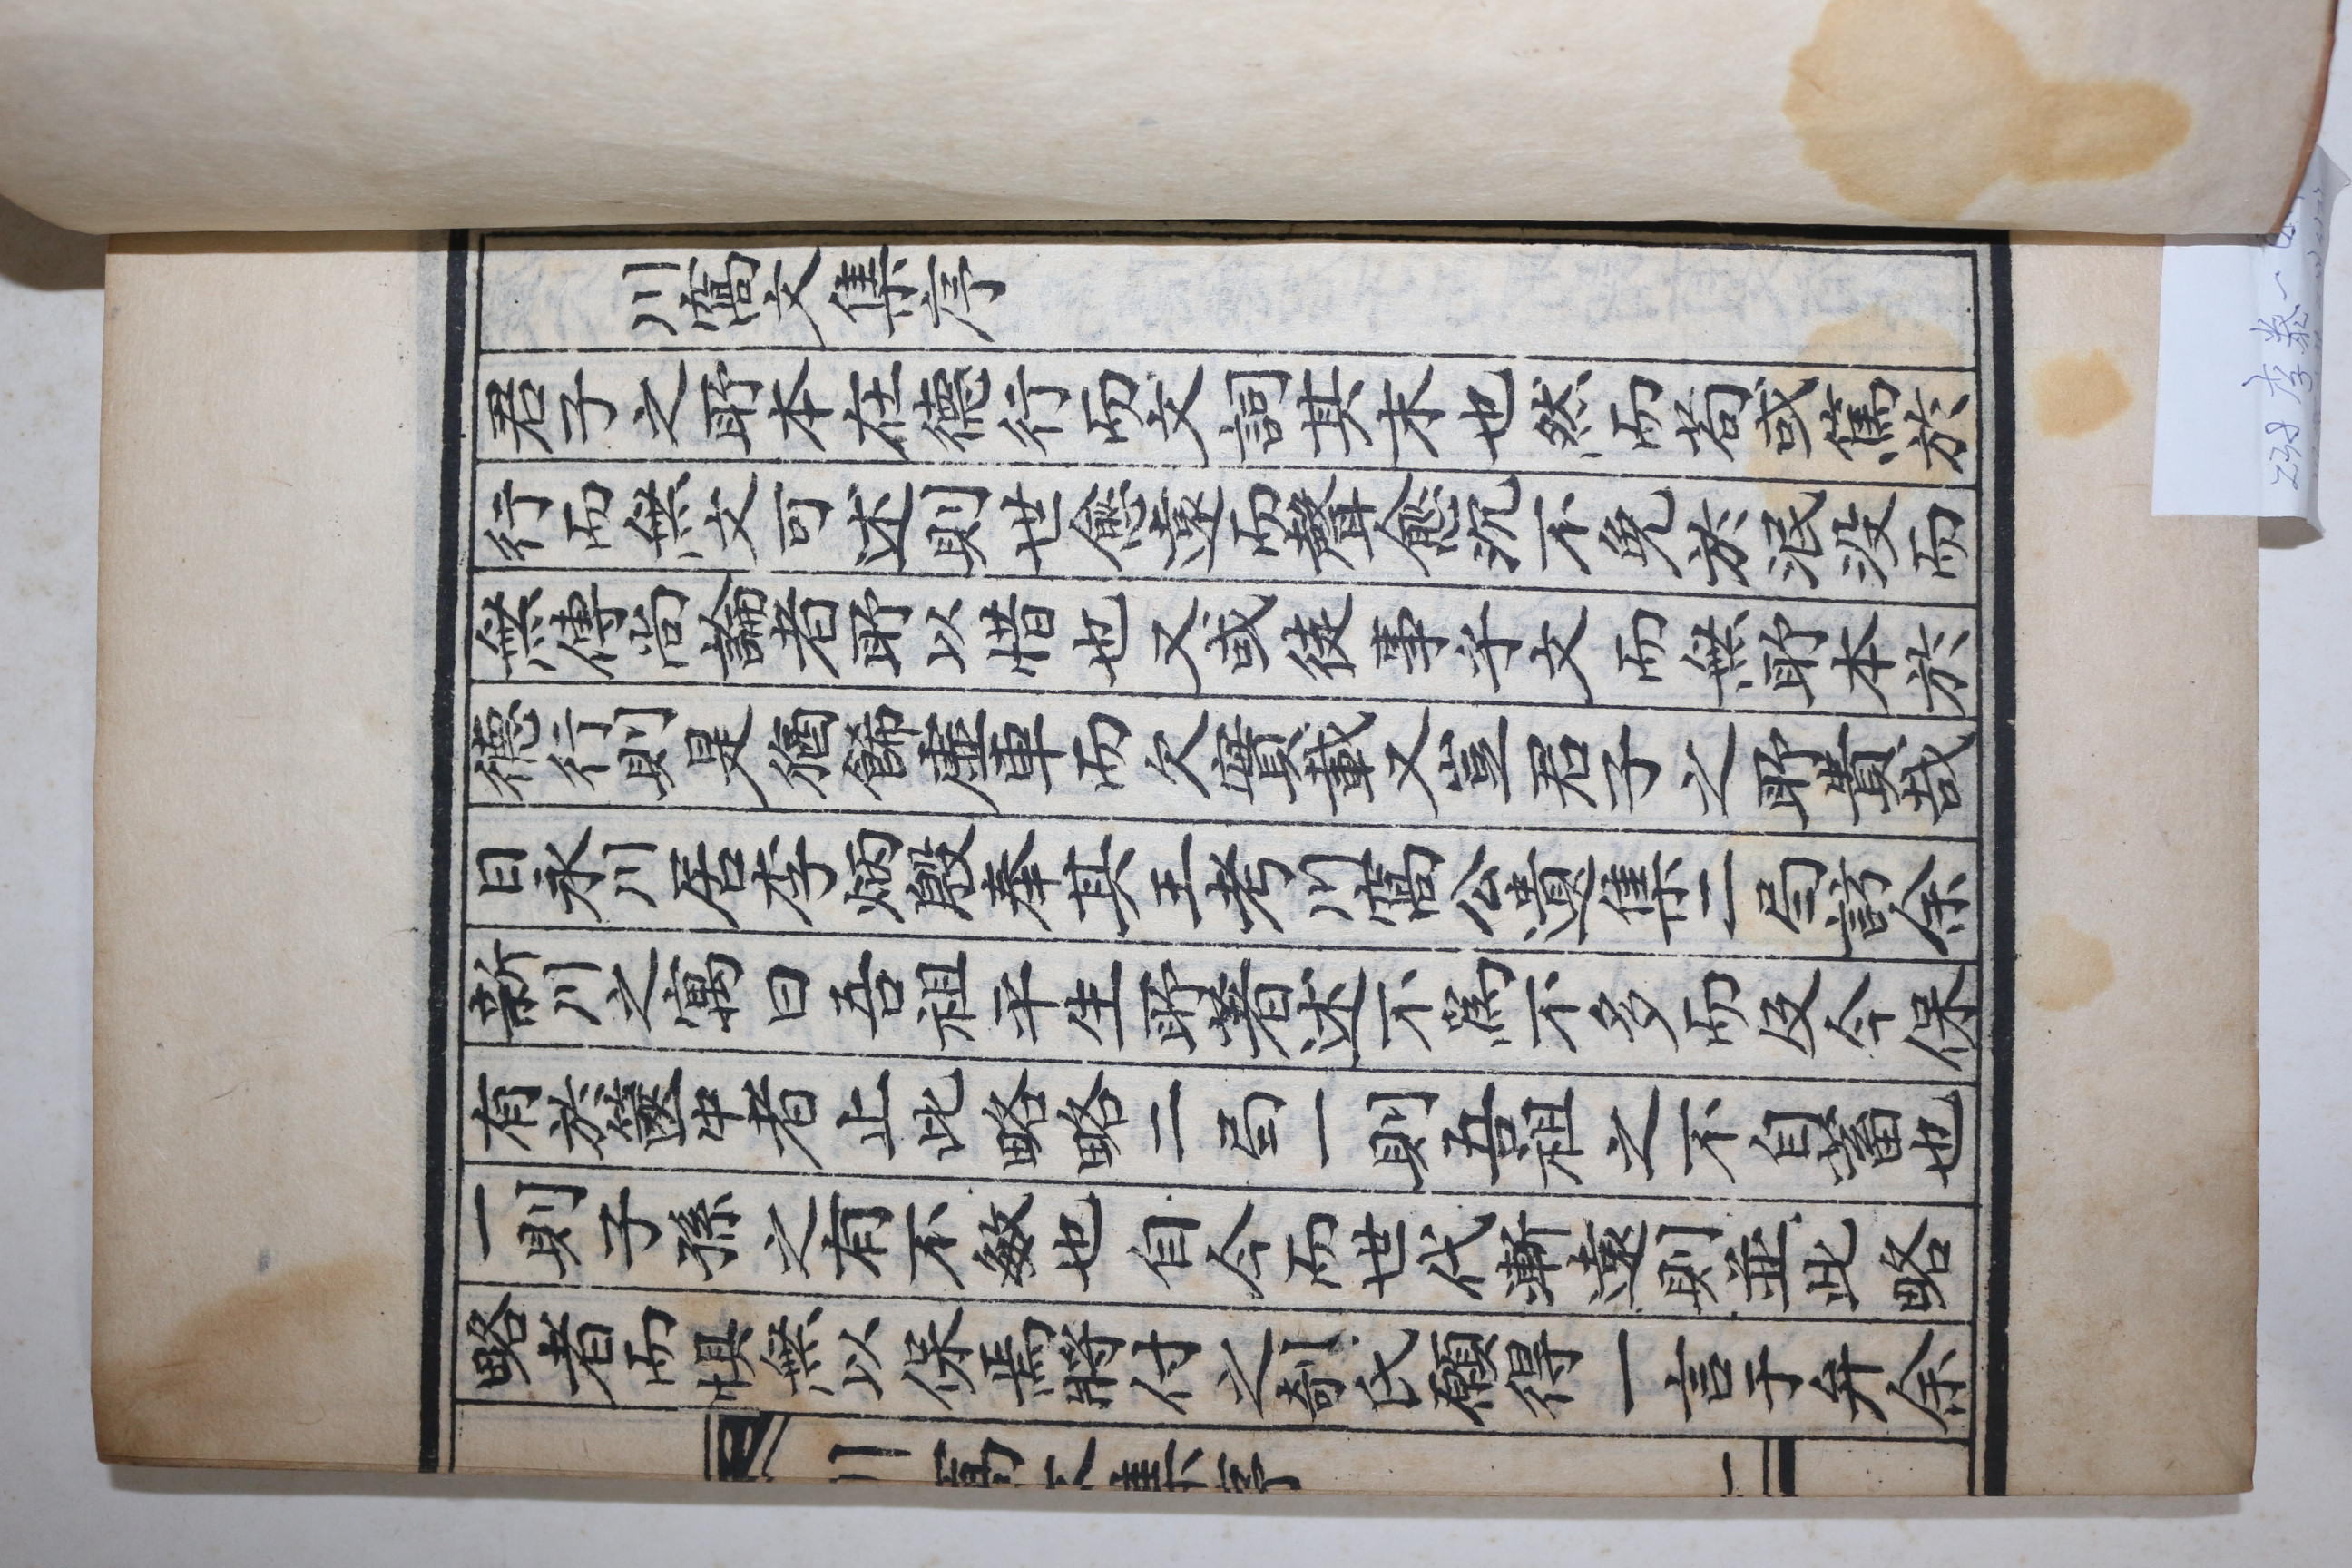 川窩文集序
君子之所本在德行而文詞其末也然而若或篤於
行而無文可述則世愈遠而聲愈沉不免於泯沒而
無傳尚論者所以惜也又或徒事乎文而無所本於
德行則是猶餙虛車而欠實載又豈君子之所貴哉
日永川居李炳殷奉其王考川窩公遺集二局訪余
新川之寓曰吾祖平生所著述不爲不多而及今保
有於篋中者止此略略二局一則吾祖之不自蓄也
一則子孫之有不敏也自今而世代漸遠則並此略
略者而惧無以保焉將付之剞氏願得一言于弁余
川窩文集序
一
238 李